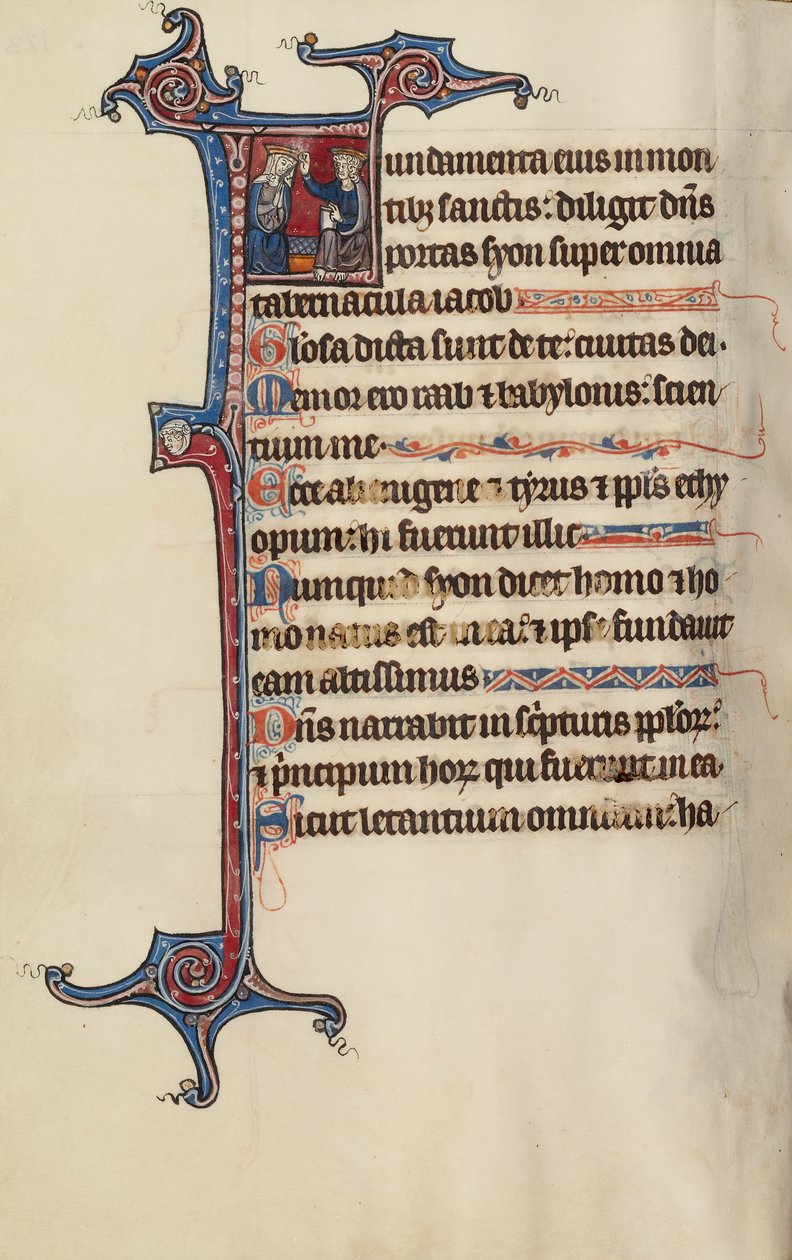 Fundamenta eius in mon
tibꝫ sanctis: diligit dn̄s
portas syon super omnia
tabernacula iacob
Gl'osa dicta sunt de te: ciuitas dei.
Memor ero raab ⁊ babylonis: scien
tium me.
Ecce alienigene ⁊ tyrus ⁊ ppl's ethy
opum: hi fuerunt illic
Numquid syon dicet homo ⁊ ho
mo natus est in ea: ⁊ ipse fundauit
eam altissimus
Dn̄s narrabit in sc̓pturis ppl'oꝝ:
⁊ p̓ncipium hoꝝ qui fuerunt in ea.
Sicut letantium omnium: ha